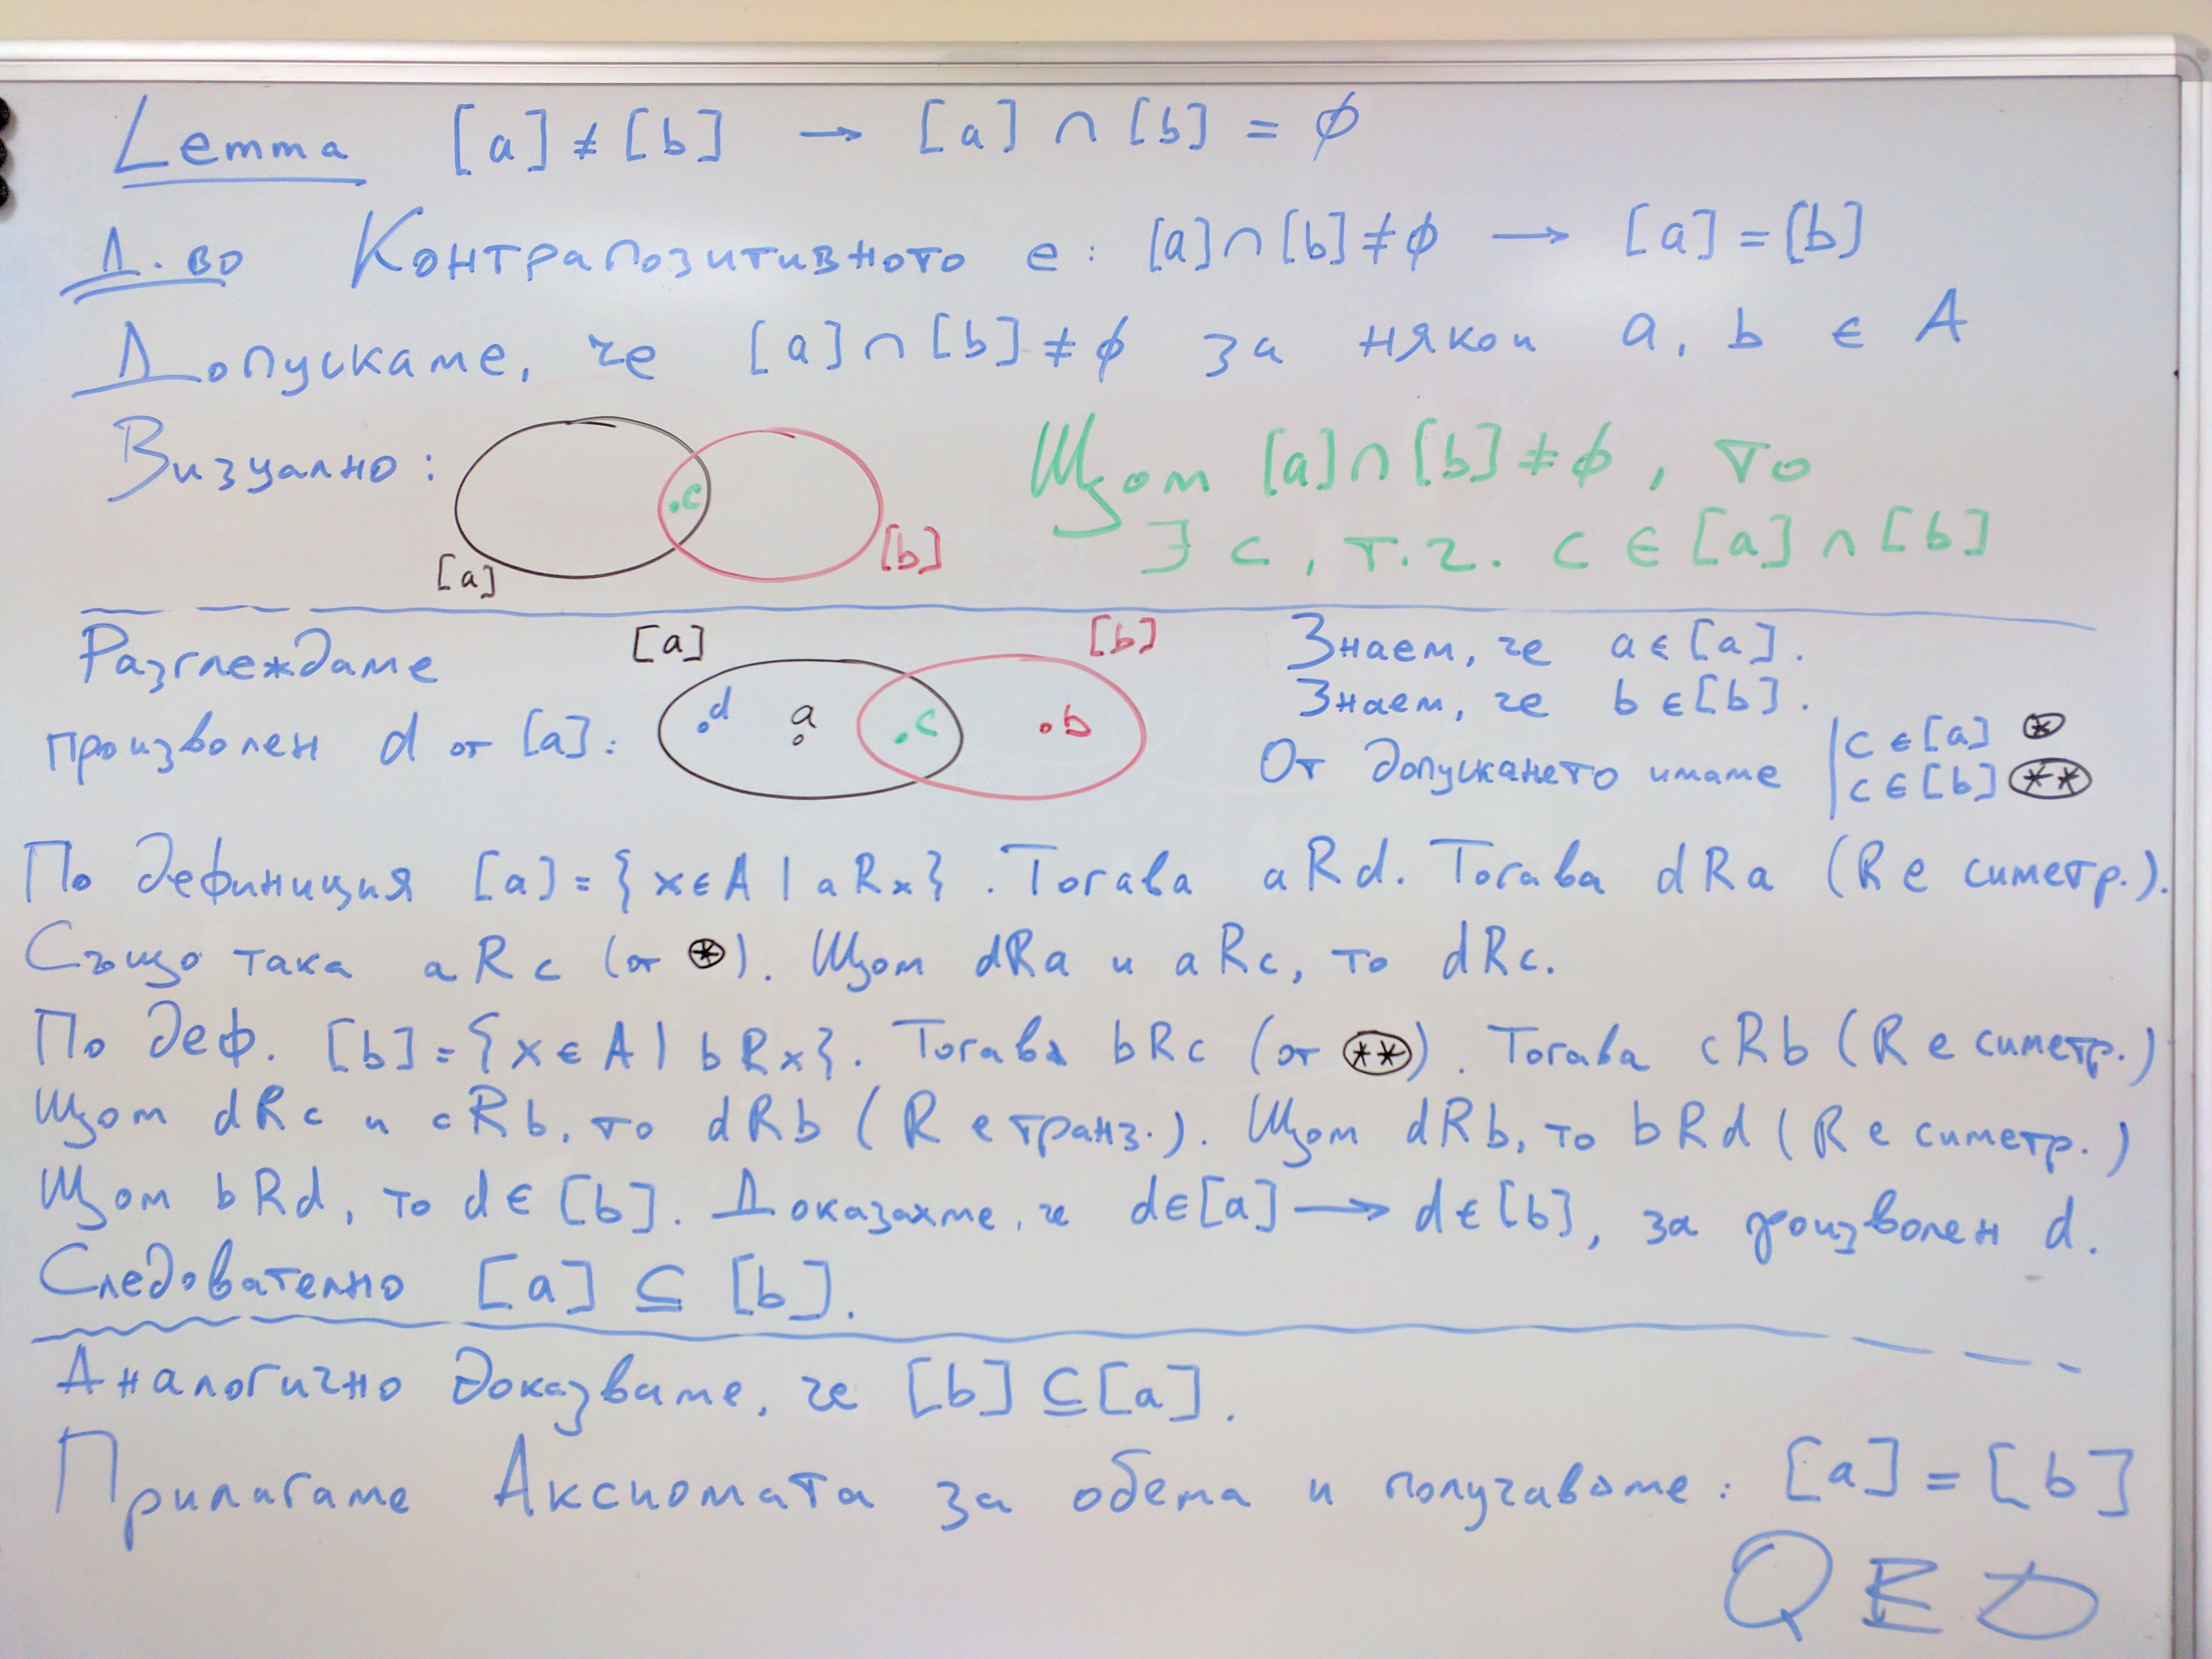 Lemma [a] ≠ [b] → [a] ∩ [b] = ∅
Д-во Контрапозитивното е: [a]∩[b]≠∅ → [a]=[b]
Допускаме, че [a]∩[b]≠∅ за някои a, b ∈ A
Визуално:
c
[a]
[b]
Щом [a]∩[b]≠∅, то
∃ c, т.ч. c ∈ [a]∩[b]
Разглеждаме
произволен d от [a]:
[a]
[b]
d a c b
Знаем, че a∈[a].
Знаем, че b∈[b].
От допускането имаме
c∈[a] (*)
c∈[b] (**)
По дефиниция [a]={x∈A | aRx}. Тогава aRd. Тогава dRa (R е симетр.).
Също така aRc (от (*)). Щом dRa и aRc, то dRc.
По деф. [b]={x∈A | bRx}. Тогава bRc (от (**)). Тогава cRb (R е симетр.)
Щом dRc и cRb, то dRb (R е транз.). Щом dRb, то bRd (R е симетр.)
Щом bRd, то d∈[b]. Доказахме, че d∈[a] → d∈[b], за произволен d.
Следователно [a] ⊆ [b].
Аналогично доказваме, че [b]⊆[a].
Прилагаме Аксиомата за обема и получаваме: [a] = [b]
QED